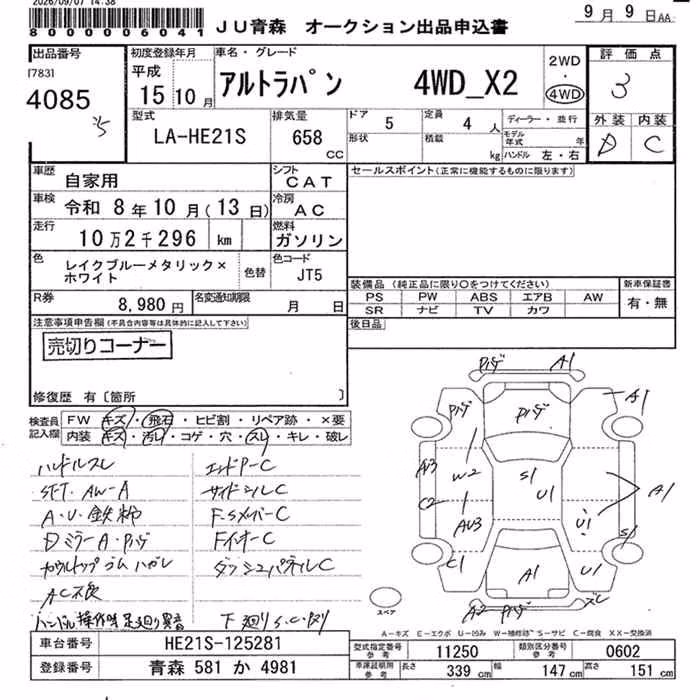 2026/09/07 14:38
8000006041
JU青森 オークション出品申込書
9月9日 AA
出品番号
[783]
4085
初度登録年月
平成
15年10月
車名・グレード
アルトラパン 4WD_X2
2WD
・
4WD
評価点
3
外装 内装
D C
型式
LA-HE21S
排気量
658
CC
ドア 5
定員 4 人
形状
積載 kg
ディーラー・並行
モデル年式 年
ハンドル 左・右
車歴
自家用
シフト
CAT
セールスポイント(正常に機能するものに限ります)
車検
令和 8年10月(13日)
冷房
AC
走行
10万2千296 km
燃料
ガソリン
色
レイクブルーメタリック×
ホワイト
色替
色コード
JT5
装備品 (純正品に限り○をつけてください)
PS PW ABS エアB AW
SR ナビ TV カワ
新車保証書
有・無
R券
8,980円
名変通知期限
月 日
後日品
注意事項申告欄(不具合内容等は具体的に記入して下さい)
売切りコーナー
修復歴 有〔箇所 〕
検査員
記入欄
FW キズ・飛石・ヒビ割・リペア跡・×要
内装 キズ・汚レ・コゲ・穴・スレ・キレ・破レ
ハンドルスレ
SFT. AW-A
A・U・鉄粉
DミラーA・ハゲ
カウルトップゴムハガレ
AC不良
ハンドル操作時足廻り異音
エンドP-C
サイドシルC
F-SメンバーC
FインナーC
ダッシュパネルC
下廻りS.C.タワ
ハゲ A1
ハゲ ハゲ A1
W2 S1 U1
C2 A1
AU3 U1 S1
C1 A1 U1
A2 ハゲ ズレ
スペア
A-キズ E-エクボ U-凹み W-補修跡 S-サビ C-腐食 XX-交換済
車台番号
HE21S-125281
登録番号
青森 581 か 4981
型式指定番号
参考
11250
類別区分番号
参考
0602
車庫証明用
参考
長さ 339 cm
幅 147 cm
高さ 151 cm